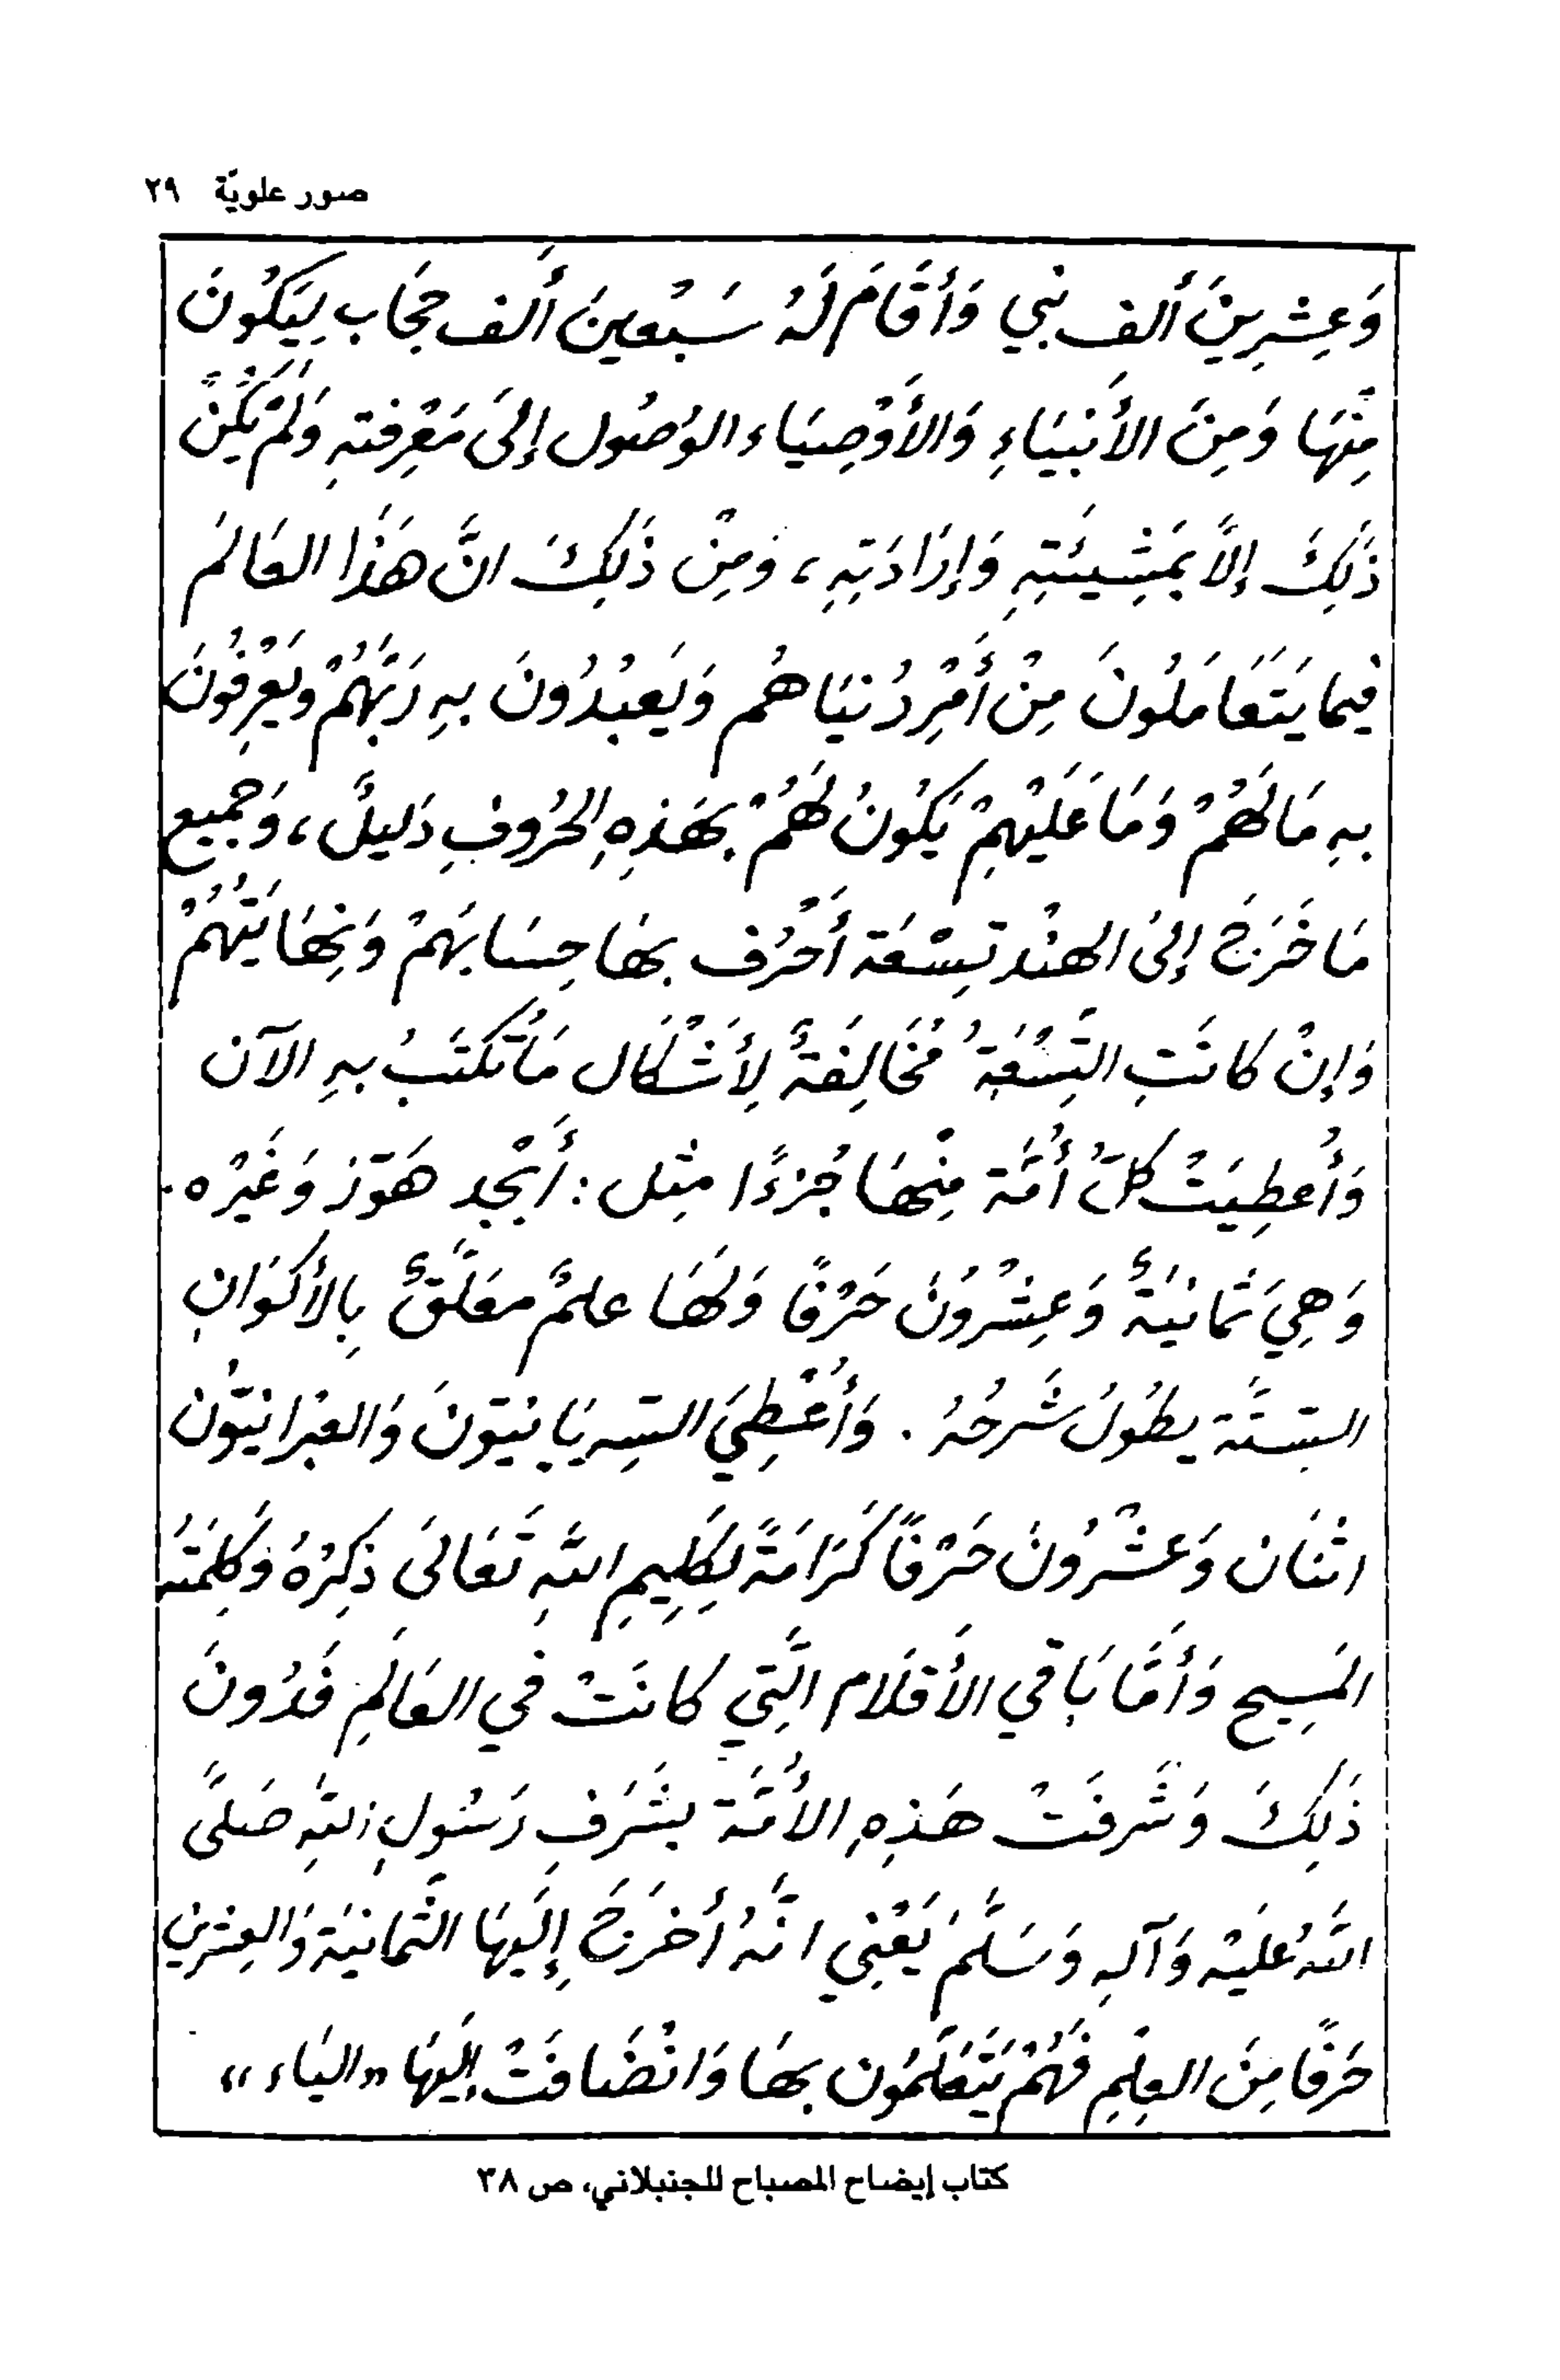 صور علويّة ٢٩
وَعِشرِينَ ألف نبي وَأقَامَ لَهُ سَبْعينَ أَلف حجَاب لِيَكُونَ
مِنْهَا وَمِنَ الأَنبيَاءِ وَالأَوْصِيَاء الوُصُول إلىَ مَعْرِفتهِ وَلَمْ يَكُنْ
ذَلِكَ إلاَّ بمَشِيئَتِهِ وَإرَادَتِهِ، وَمِنْ ذَلِكَ انَّ هَذَا العَالمَ
فيما يَتَعَامَلُونَ مِنْ أَمْرِ دُنيَاهُم وَيَعبُدُونَ بهِ رَبَّهُمْ وَيَعْرِفُونَ
بهِ مَا لَهُمْ وَمَا عَلَيْهِمْ يَكُونُ لَهُمْ بهَذِهِ الحُرُوفِ دَليلٌ، وَجَميع
مَا خَرَجَ إلىَ الهنْد تِسْعَة أَحْرُف بهَا حِسَابهَمْ وَنِهَايَتُهُمْ
وَإنْ كانَتِ التِسْعَةُ مُخَالِفَةٌ لِأَشْكَال مَا تُكتَبُ بهِ الآن
وَأُعطِيَتْ كلّ أُمَّة مِنْهَا جُزءًا مِثل : أَبْجد هَوّز وَغَيْره.
وَهِيَ ثمَانيَةٌ وَعِشْرُونَ حَرْفًا وَلهَا علمٌ معَلَّقٌ بِالأَكوَانِ
السِتَّة يطُولُ شَرحُهُ. وَأُعْطِيَ السِريَانيّونَ وَالعبْرانيّون
اثنَان وَعشْرُونَ حَرْفًا كَرَامَةً لِكَلِيمِ اللَّهِ تَعَالىَ ذِكرُهُ وَكَلِمَتهُ
المَسِيح وَأَمَّا بَاقي الأَقلَام الَّتِي كانَتْ في العَالَمِ فَدُونَ
ذَلِكَ وَشَرفَتْ هَذِهِ الأُمَّة بشَرَفِ رَسُولِ اللَّهِ صَلىَّ
اللَّهُ عَلَيْه وَآلهِ وَسَلَّمَ يَعْنِي انَّهُ أخرَجَ إِلَيهَا الثَّمانيَة وَالعِشرين
حَرفًا مِنَ العِلمِ فَهُمْ يَتَعَلَمُون بهَا وَانْضَافَتْ إلَيهَا «اليَاء»
كتاب إيضاح المصباح للجنبلاني، ص ٣٨